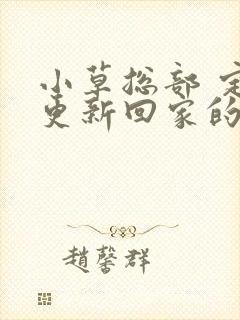 小草总部 定
更新回家的
趙馨群